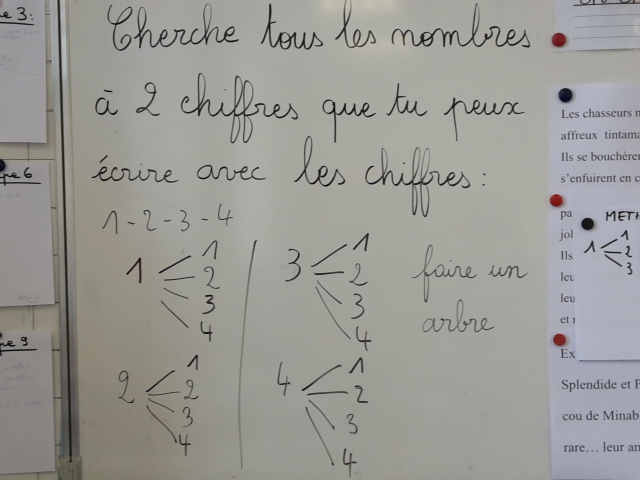 Cherche tous les nombres
à 2 chiffres que tu peux
écrire avec les chiffres :
1 - 2 - 3 - 4
1 1
2
3
4
2 1
2
3
4
3 1
2
3
4
4 1
2
3
4
faire un
arbre
3:
6
9
Les chasseurs
affreux tintama
Ils se bouchère
s'enfuirent en c
pa
jol
Ils
leu
leu
et
METH
1 1
2
3
Ex
Splendide et P
cou de Minab
rare... leur an